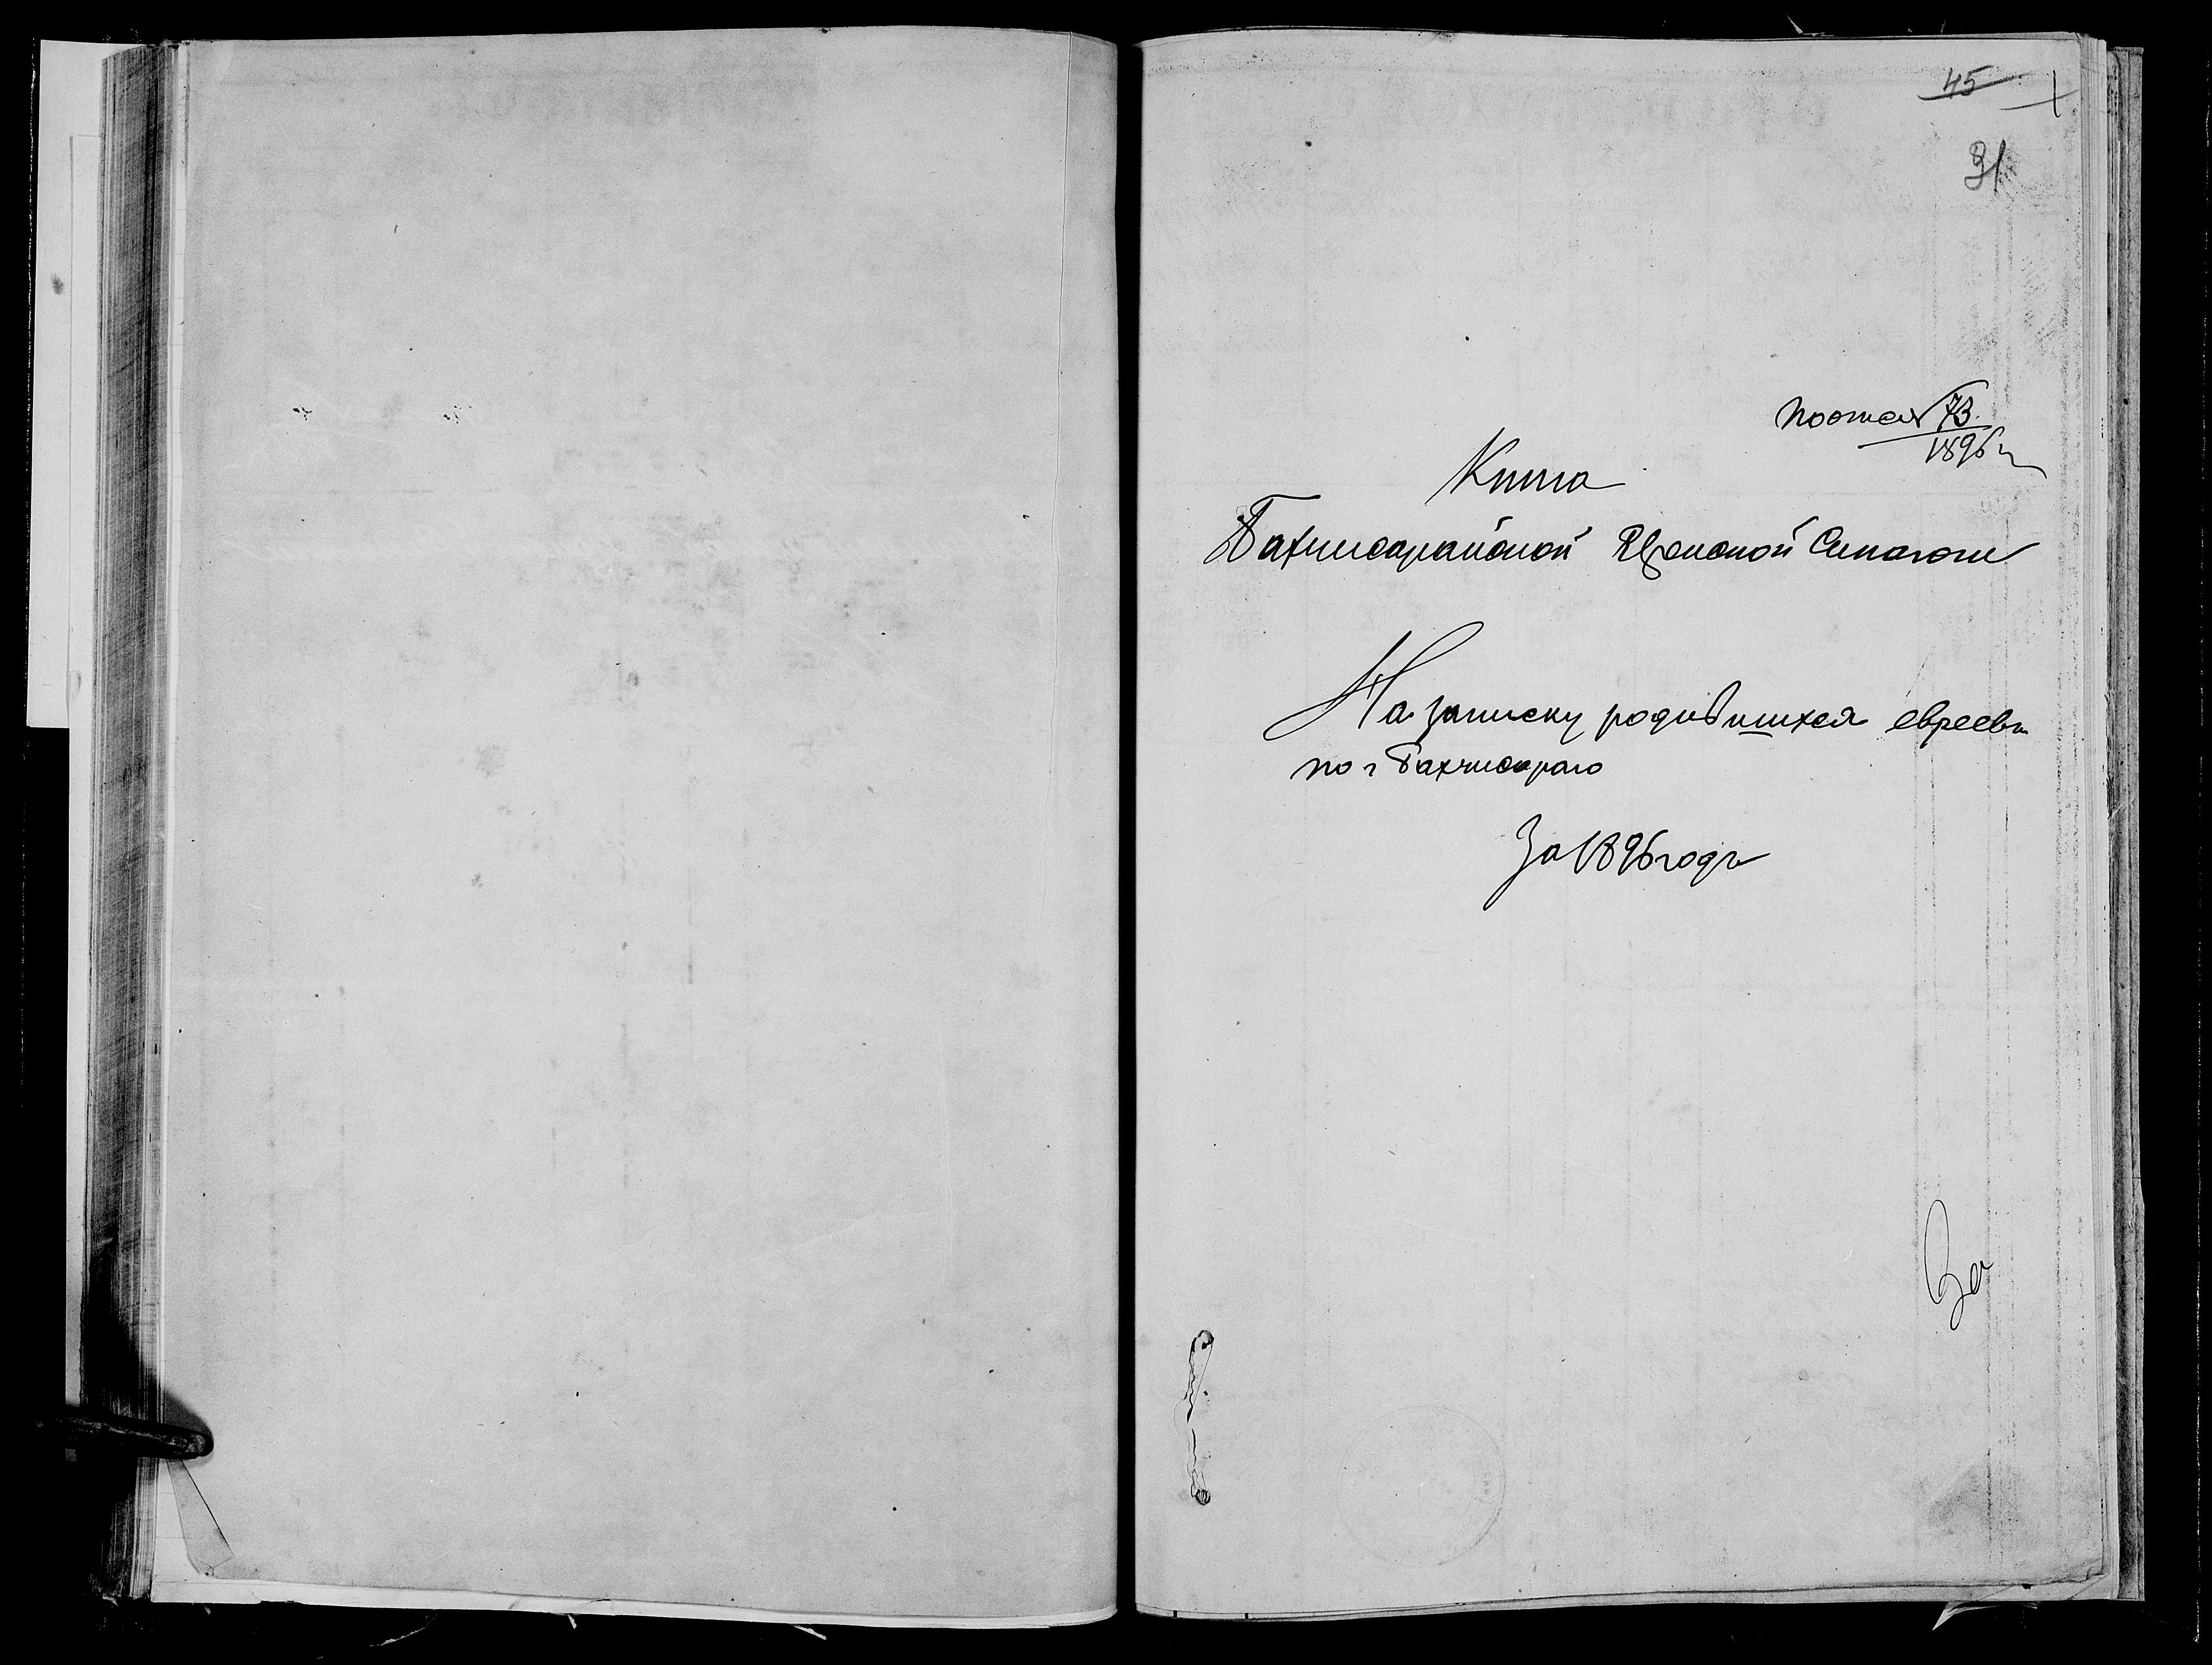 45
31
73
1896 г
Книга
Бахчисарайской Синагоги
На записку родившихся евреевъ
по г Бахчисараю
За 1896 годъ
За